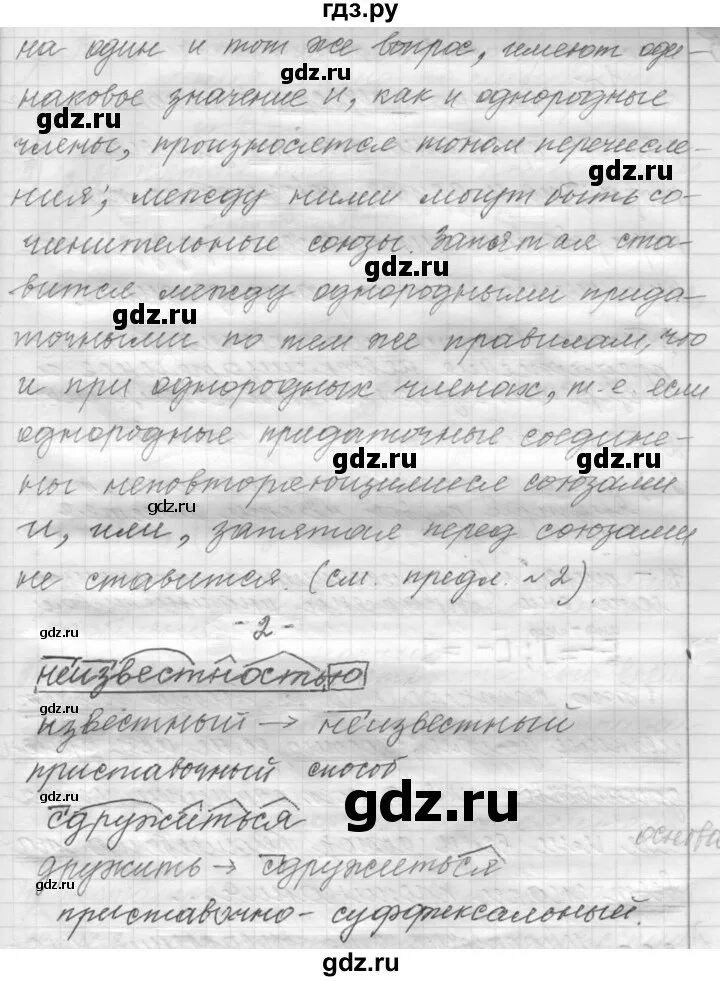 гдз.ру
на один и тот же вопрос, имеют оди-
gdz.ru
наковое значение и, как и однородные
gdz.ru
члены, произносятся тоном перечисле-
gdz.ru
ния; между ними могут быть со-
чинительные союзы. Запятая ста-
gdz.ru
вится между однородными прида-
gdz.ru
точными по тем же правилам, что
и при однородных членах, т. е. если
gdz.ru
однородные придаточные соедине-
gdz.ru gdz.ru
ны неповторяющимися союзами
gdz.ru
и, или, запятая перед союзами
не ставится. (см. предл. №2)
gdz.ru
- 2 -
неизвестностью
gdz.ru
известный → неизвестный
приставочный способ
gdz.ru
gdz.ru
сдружиться
основы
дружить → сдружиться
gdz.ru
приставочно-суффиксальный.
gdz.ru